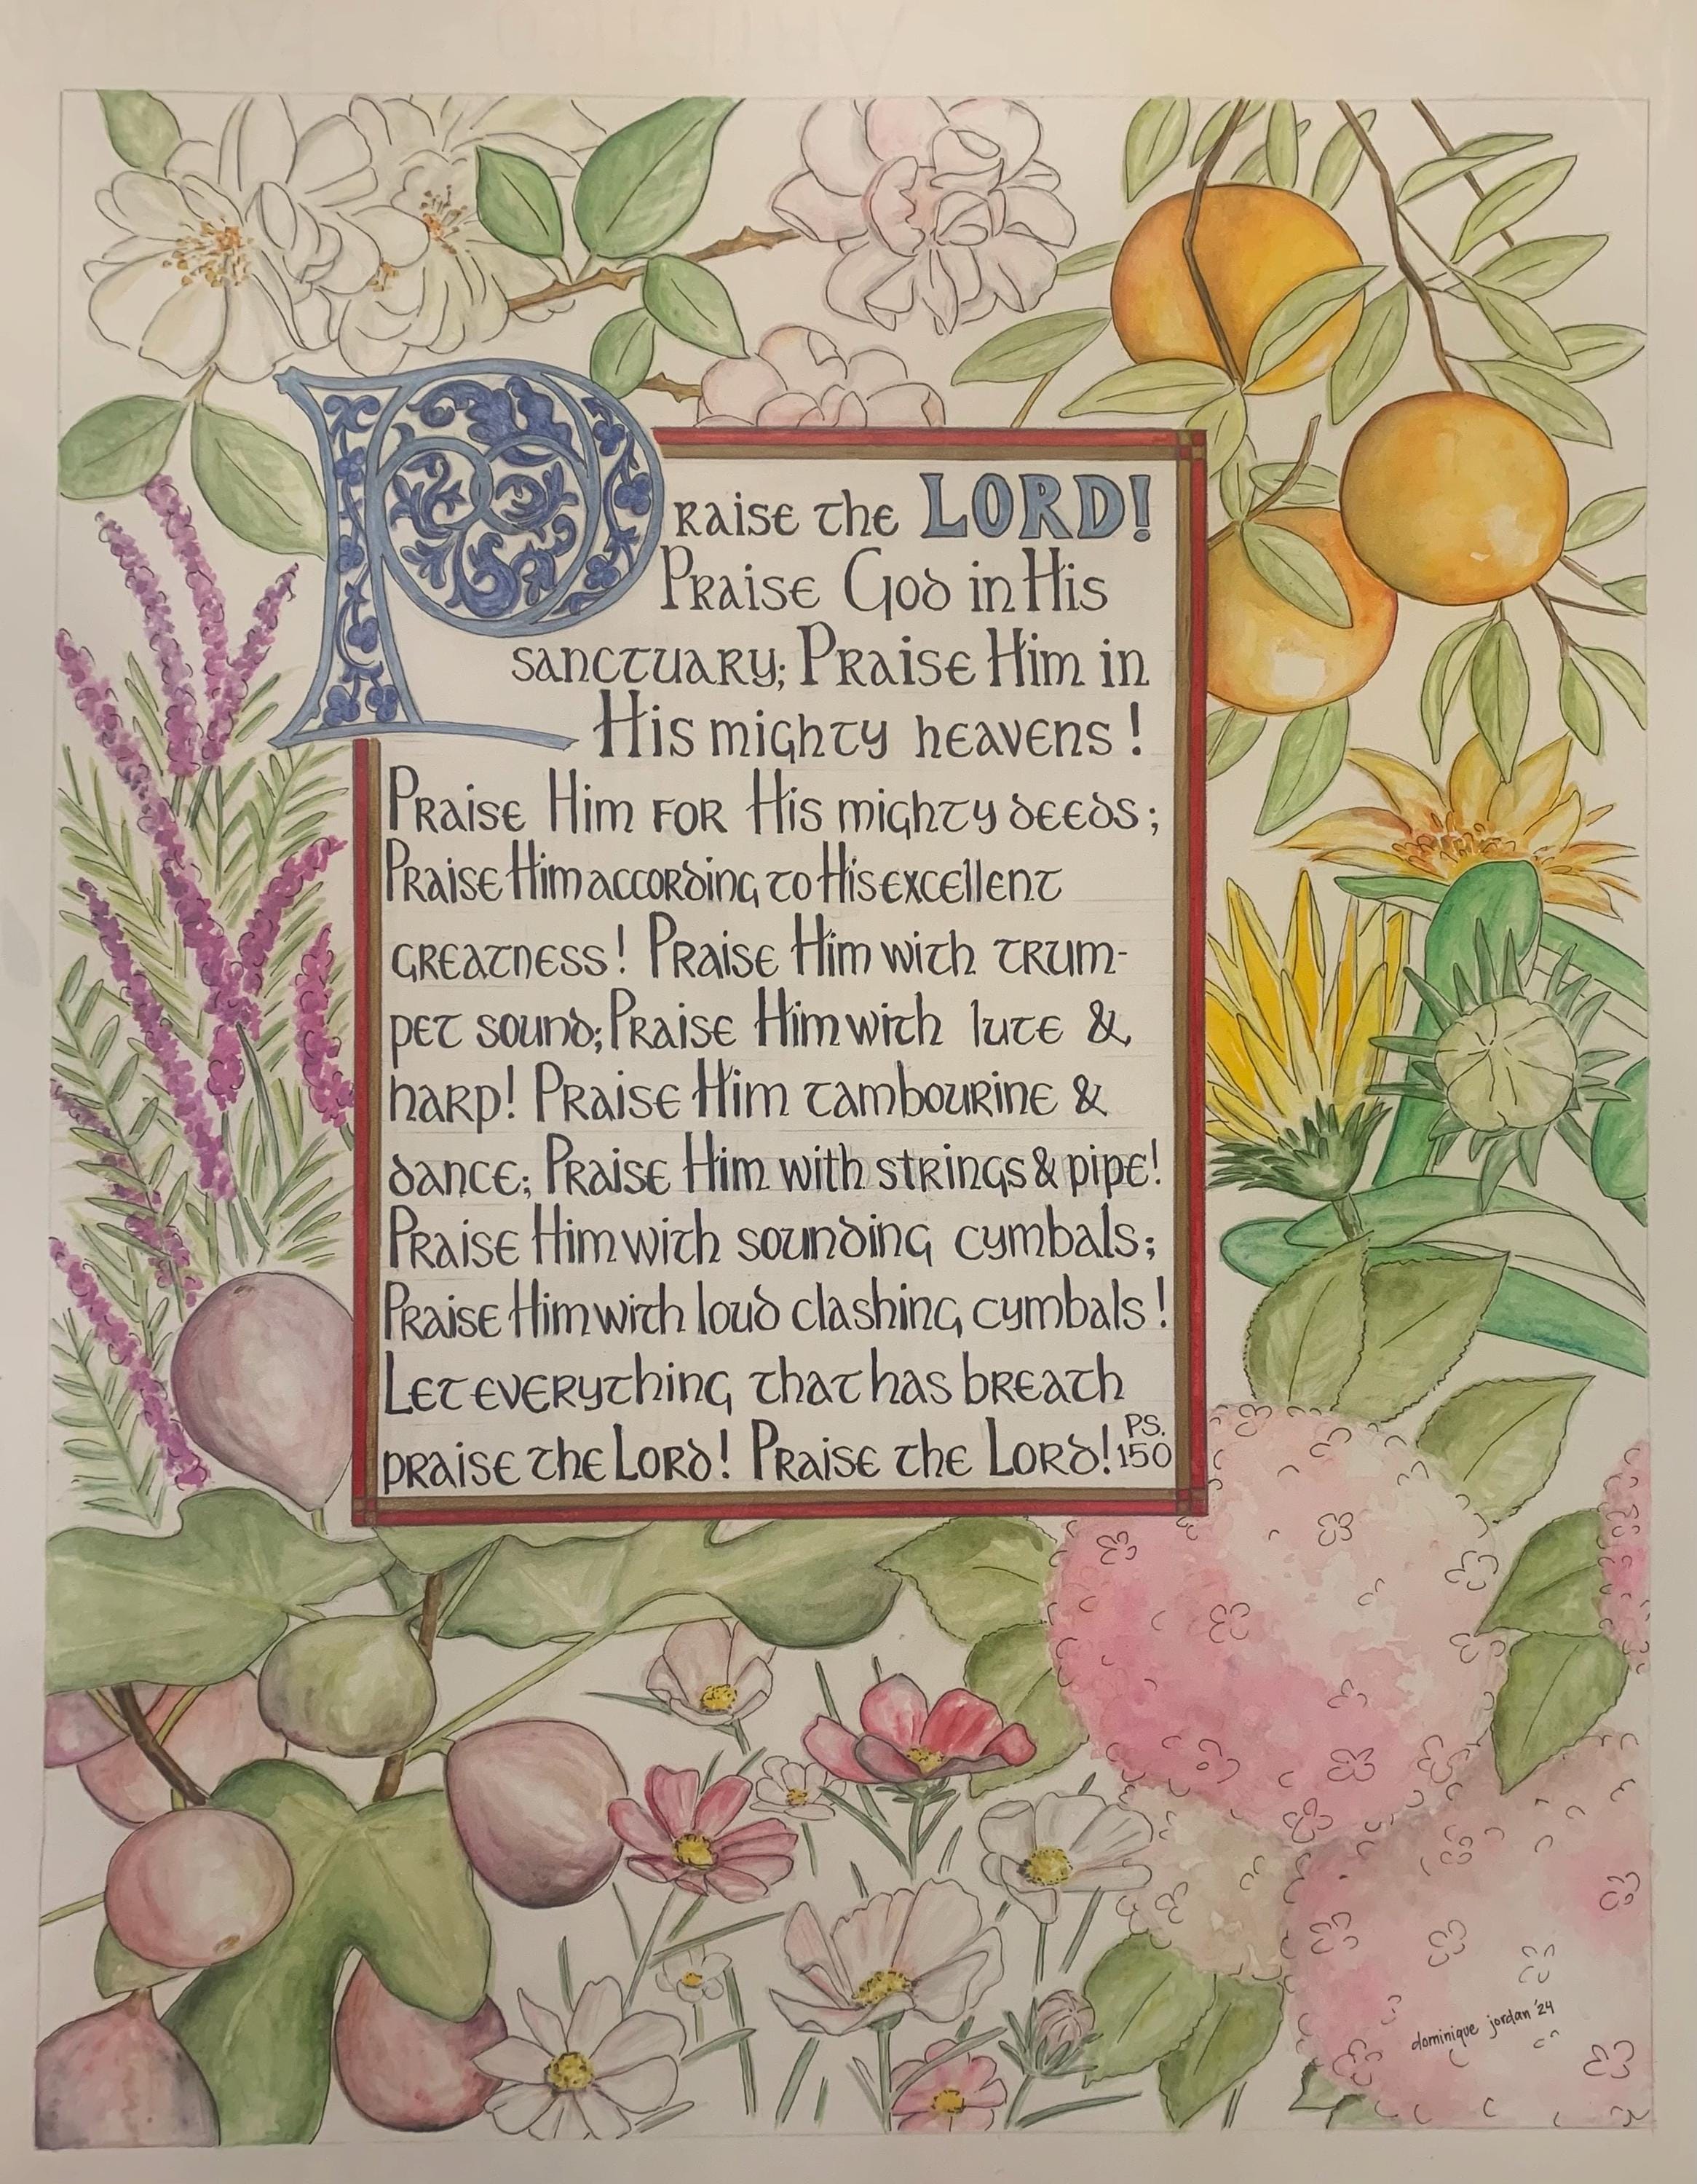 Praise the LORD!
Praise God in His
sanctuary; Praise Him in
His mighty heavens!
Praise Him for His mighty deeds;
Praise Him according to His excellent
greatness! Praise Him with trum-
pet sound; Praise Him with lute &
harp! Praise Him tambourine &
dance; Praise Him with strings & pipe!
Praise Him with sounding cymbals;
Praise Him with loud clashing cymbals!
Let everything that has breath
praise the Lord! Praise the Lord!
PS.
150
dominique jordan '24